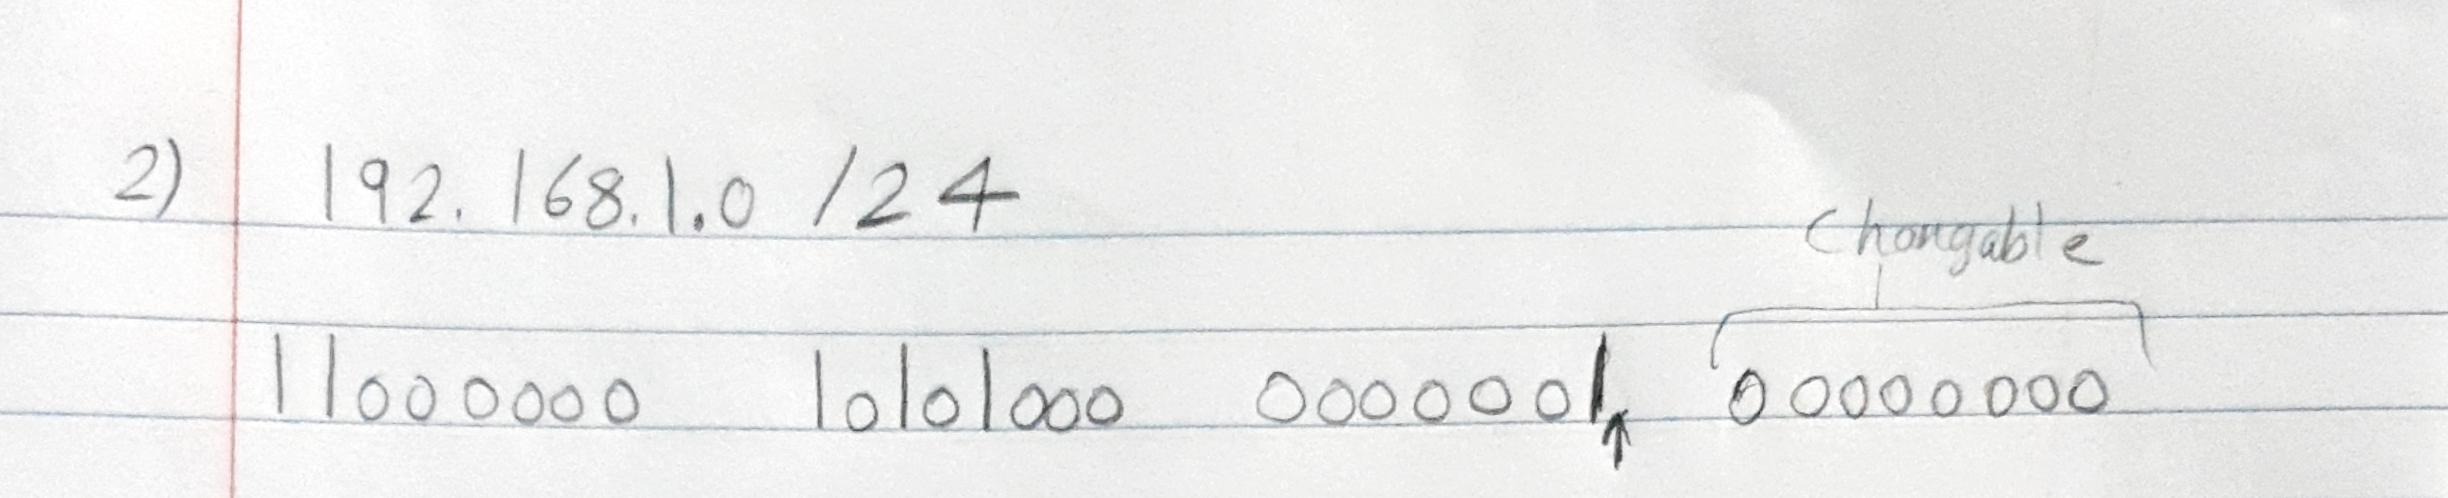 2) 192.168.1.0 /24
Changable
11000000 10101000 00000001 00000000